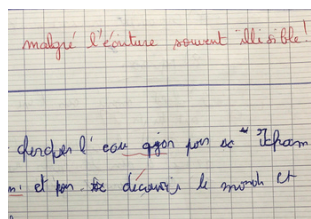 malgré l'écriture souvent illisible!
chercher l'eau pour sa "
et pour découvrir le monde et